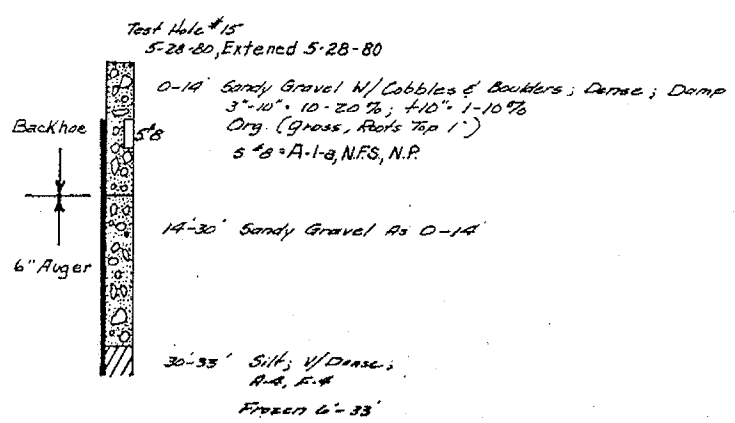 Test Hole #15
5-28-80, Extened 5-28-80
0-14' Sandy Gravel W/Cobbles & Boulders; Dense; Damp
3"-10" = 10-20%; +10" = 1-10%
Org. (Grass, Roots Top 1')
S #8
S #8 = A-1-a, N.F.S., N.P.
Backhoe
14'-30' Sandy Gravel As 0-14'
6" Auger
30'-33' Silt; V/Dense;
A-4, F-4
Frozen 6'-33'